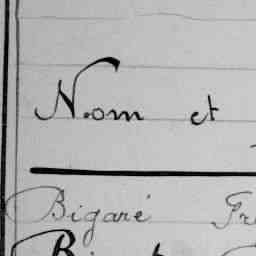 Nom et
Bigaré Fr